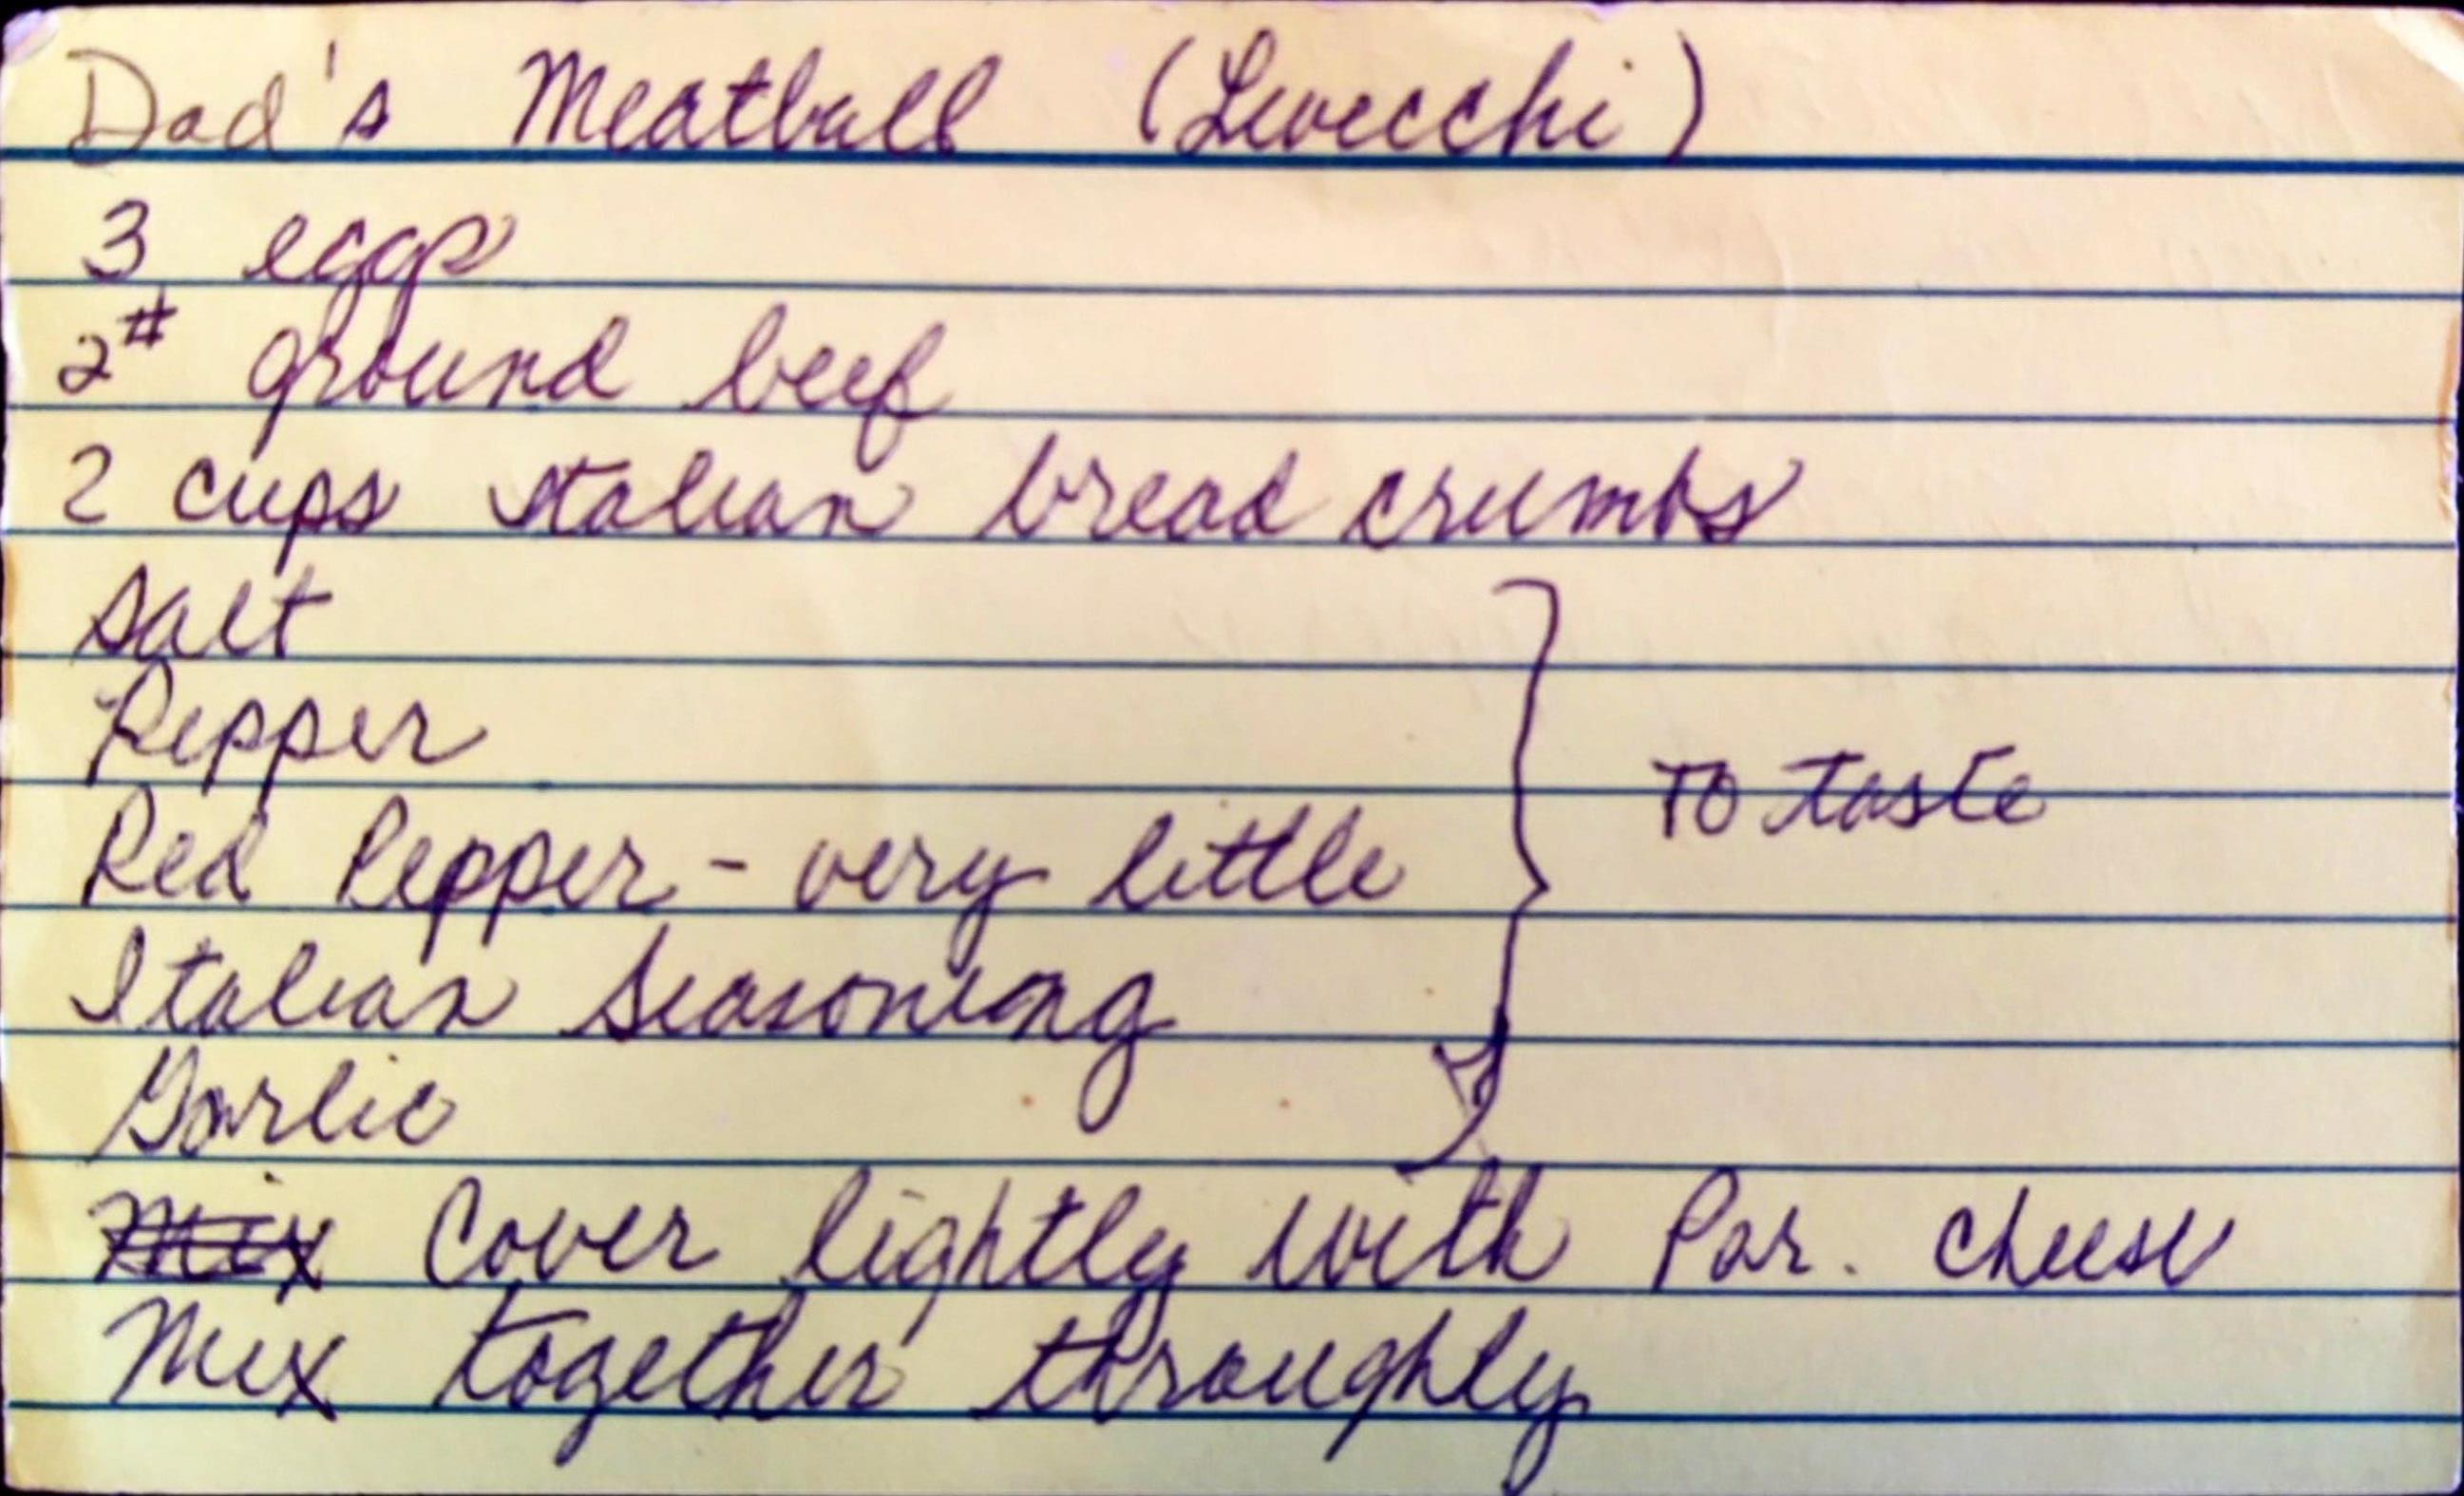 Dad's Meatball (Livecchi)
3 eggs
2# ground beef
2 cups italian bread crumbs
salt
Pepper
Red Pepper - very little
To taste
Italian Seasoning
Garlic
Mix Cover lightly with Par. cheese
Mix together throughly